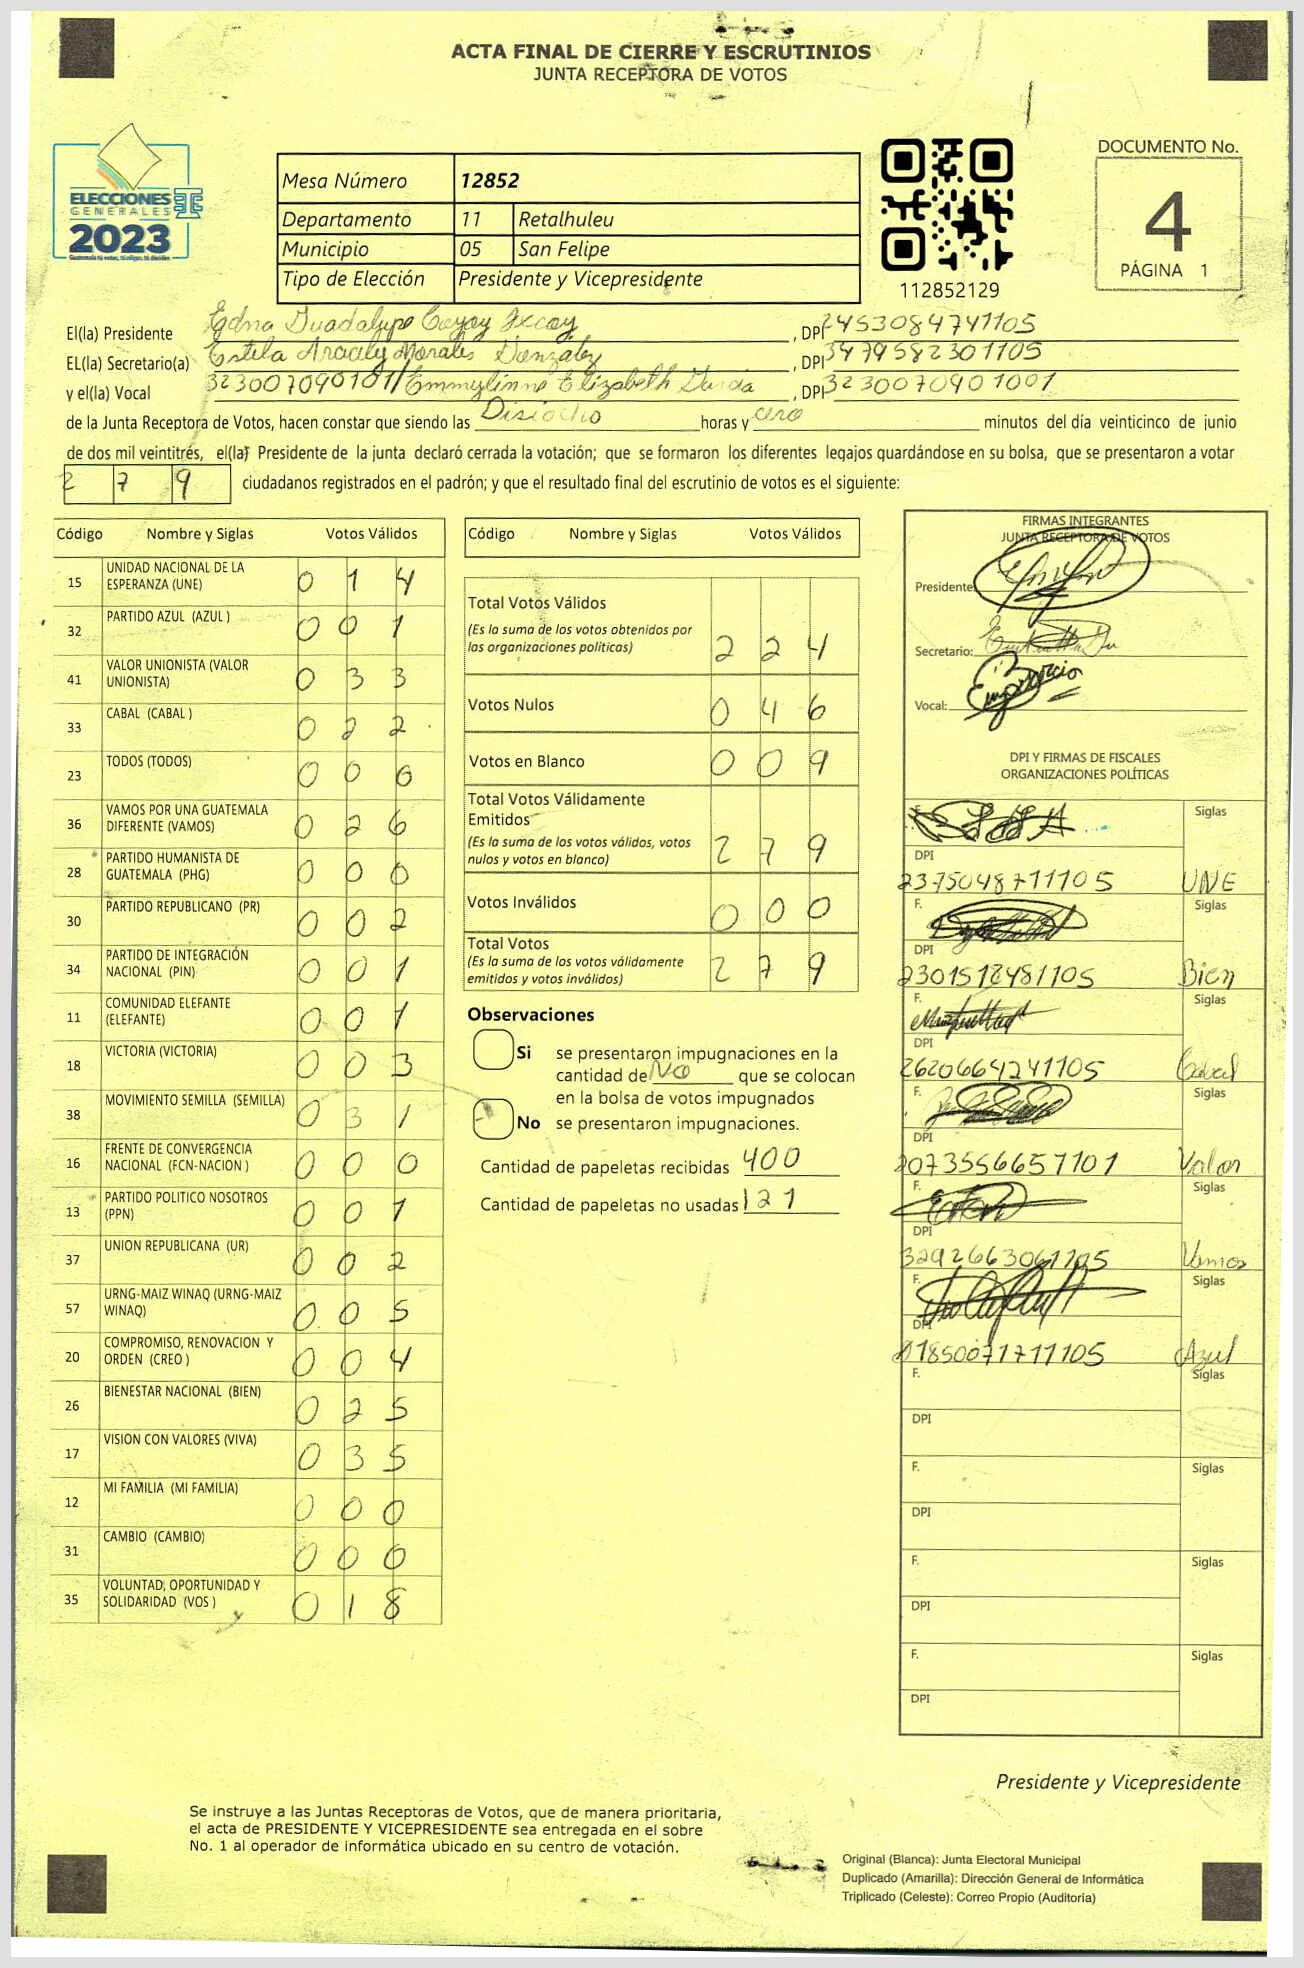 ACTA FINAL DE CIERRE Y ESCRUTINIOS
JUNTA RECEPTORA DE VOTOS
ELECCIONES
GENERALES
2023
Guatemala tú votas, tú eliges, tú decides
Mesa Número 12852
Departamento 11 Retalhuleu
Municipio 05 San Felipe
Tipo de Elección Presidente y Vicepresidente
112852129
DOCUMENTO No.
4
PÁGINA 1
El(la) Presidente Edna Guadalupe Ixcoy , DPI 2453084741105
EL(la) Secretario(a) Estela Aracely Morales Gonzalez , DPI 3479582301105
y el(la) Vocal Emmylinne Elizabeth Garcia , DPI 3230070901001
de la Junta Receptora de Votos, hacen constar que siendo las Disiocho horas y cero minutos del día veinticinco de junio
de dos mil veintitrés, el(la) Presidente de la junta declaró cerrada la votación; que se formaron los diferentes legajos quardándose en su bolsa, que se presentaron a votar
2 7 9 ciudadanos registrados en el padrón; y que el resultado final del escrutinio de votos es el siguiente:
Código Nombre y Siglas Votos Válidos
15 UNIDAD NACIONAL DE LA ESPERANZA (UNE) 0 1 4
32 PARTIDO AZUL (AZUL ) 0 0 1
41 VALOR UNIONISTA (VALOR UNIONISTA) 0 3 3
33 CABAL (CABAL ) 0 2 2
23 TODOS (TODOS) 0 0 6
36 VAMOS POR UNA GUATEMALA DIFERENTE (VAMOS) 0 2 6
28 PARTIDO HUMANISTA DE GUATEMALA (PHG) 0 0 0
30 PARTIDO REPUBLICANO (PR) 0 0 2
34 PARTIDO DE INTEGRACIÓN NACIONAL (PIN) 0 0 1
11 COMUNIDAD ELEFANTE (ELEFANTE) 0 0 1
18 VICTORIA (VICTORIA) 0 0 3
38 MOVIMIENTO SEMILLA (SEMILLA) 0 3 1
16 FRENTE DE CONVERGENCIA NACIONAL (FCN-NACION ) 0 0 0
13 PARTIDO POLITICO NOSOTROS (PPN) 0 0 1
37 UNION REPUBLICANA (UR) 0 0 2
57 URNG-MAIZ WINAQ (URNG-MAIZ WINAQ) 0 0 5
20 COMPROMISO, RENOVACION Y ORDEN (CREO ) 0 0 4
26 BIENESTAR NACIONAL (BIEN) 0 2 5
17 VISION CON VALORES (VIVA) 0 3 5
12 MI FAMILIA (MI FAMILIA) 0 0 0
31 CAMBIO (CAMBIO) 0 0 0
35 VOLUNTAD, OPORTUNIDAD Y SOLIDARIDAD (VOS ) 0 1 8
Código Nombre y Siglas Votos Válidos
Total Votos Válidos
(Es la suma de los votos obtenidos por
las organizaciones políticas) 2 2 4
Votos Nulos 0 4 6
Votos en Blanco 0 0 9
Total Votos Válidamente
Emitidos
(Es la suma de los votos válidos, votos
nulos y votos en blanco) 2 7 9
Votos Inválidos 0 0 0
Total Votos
(Es la suma de los votos válidamente
emitidos y votos inválidos) 2 7 9
Observaciones
Si se presentaron impugnaciones en la
cantidad de No que se colocan
en la bolsa de votos impugnados
No se presentaron impugnaciones.
Cantidad de papeletas recibidas 400
Cantidad de papeletas no usadas 121
FIRMAS INTEGRANTES
JUNTA RECEPTORA DE VOTOS
Presidente:
Secretario:
Vocal:
DPI Y FIRMAS DE FISCALES
ORGANIZACIONES POLÍTICAS
F. Siglas
DPI
2375048711105 UNE
F. Siglas
DPI
Bien
F. Siglas
DPI
2620664241105 Cabal
F. Siglas
DPI
2073556657101 Valor
F. Siglas
DPI
3292663061105 Vamos
F. Siglas
DPI
Azul
F. Siglas
DPI
F. Siglas
DPI
F. Siglas
DPI
F. Siglas
DPI
Presidente y Vicepresidente
Se instruye a las Juntas Receptoras de Votos, que de manera prioritaria,
el acta de PRESIDENTE Y VICEPRESIDENTE sea entregada en el sobre
No. 1 al operador de informática ubicado en su centro de votación.
Original (Blanca): Junta Electoral Municipal
Duplicado (Amarilla): Dirección General de Informática
Triplicado (Celeste): Correo Propio (Auditoría)